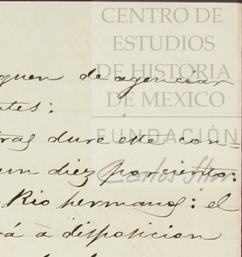 CENTRO DE
ESTUDIOS
DE HISTORIA
DE MEXICO
FUNDACIÓN
Carlos Slim
guen de agenciar
ntes:
tras dure este con-
un diez porciento:
Rio hermanos: el
rá a disposicion